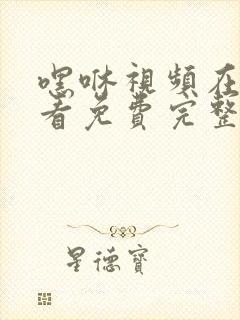 嘿咻視頻在
看免費完整
星德寶